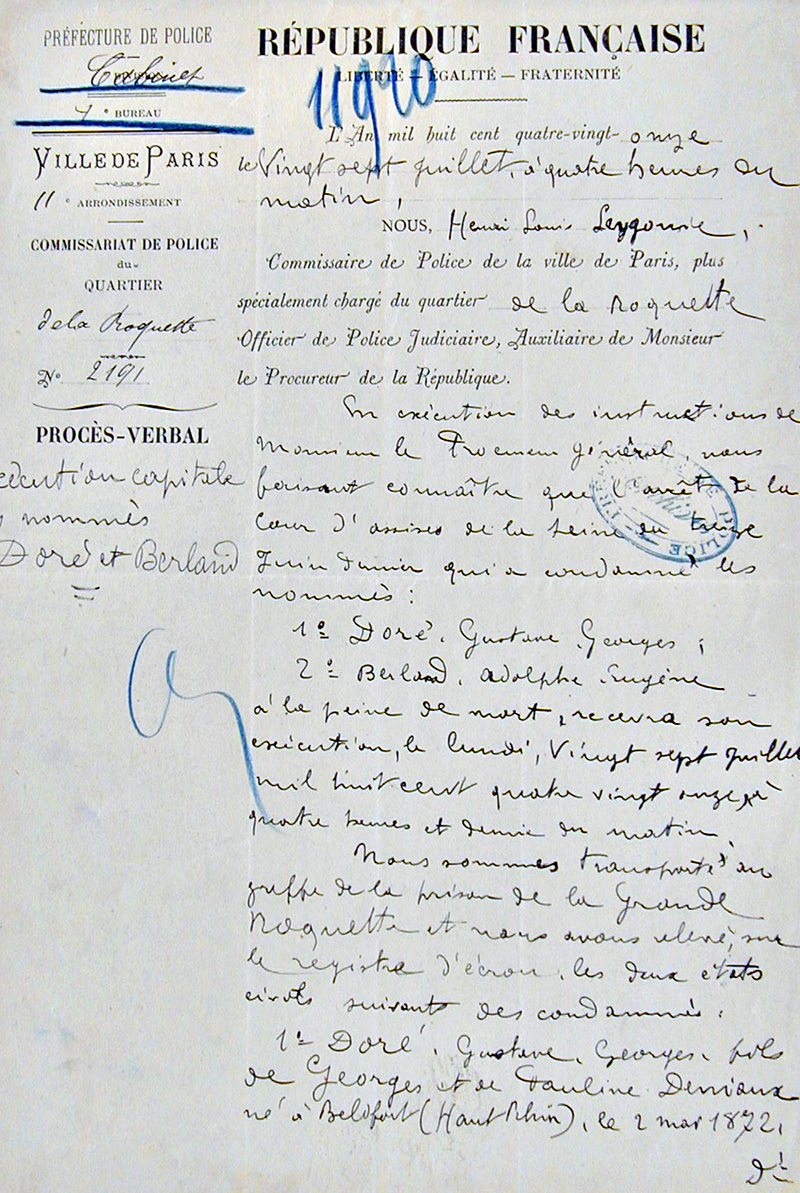 PRÉFECTURE DE POLICE
Cabinet
1e BUREAU
VILLE DE PARIS
11e ARRONDISSEMENT
COMMISSARIAT DE POLICE
du
QUARTIER
de la Roquette
No 2191
PROCÈS-VERBAL
exécution capitale
nommés
Doré et Berland
RÉPUBLIQUE FRANÇAISE
LIBERTÉ — ÉGALITÉ — FRATERNITÉ
11920
L'An mil huit cent quatre-vingt-onze
le Vingt sept juillet, à quatre heures du
matin,
NOUS, Henri Louis Leygonie,
Commissaire de Police de la ville de Paris, plus
spécialement chargé du quartier de la Roquette
Officier de Police Judiciaire, Auxiliaire de Monsieur
le Procureur de la République.
En exécution des instructions de
Monsieur le Procureur général, nous
faisant connaître que l'arrêt de la
Cour d'assises de la Seine du treize
Juin dernier qui a condamné les
nommés :
1o Doré, Gustave Georges ;
2o Berland, Adolphe Eugène
à la peine de mort, recevra son
exécution, le lundi, Vingt sept juillet
mil huit cent quatre vingt onze, à
quatre heures et demie du matin,
Nous sommes transporté au
greffe de la prison de la Grande
Roquette et nous avons relevé, sur
le registre d'écrou, les deux états
civils suivants des condamnés :
1o Doré, Gustave, Georges, fils
de Georges et de Pauline
né à Belfort (Haut Rhin), le 2 mai 1872,
POLICE